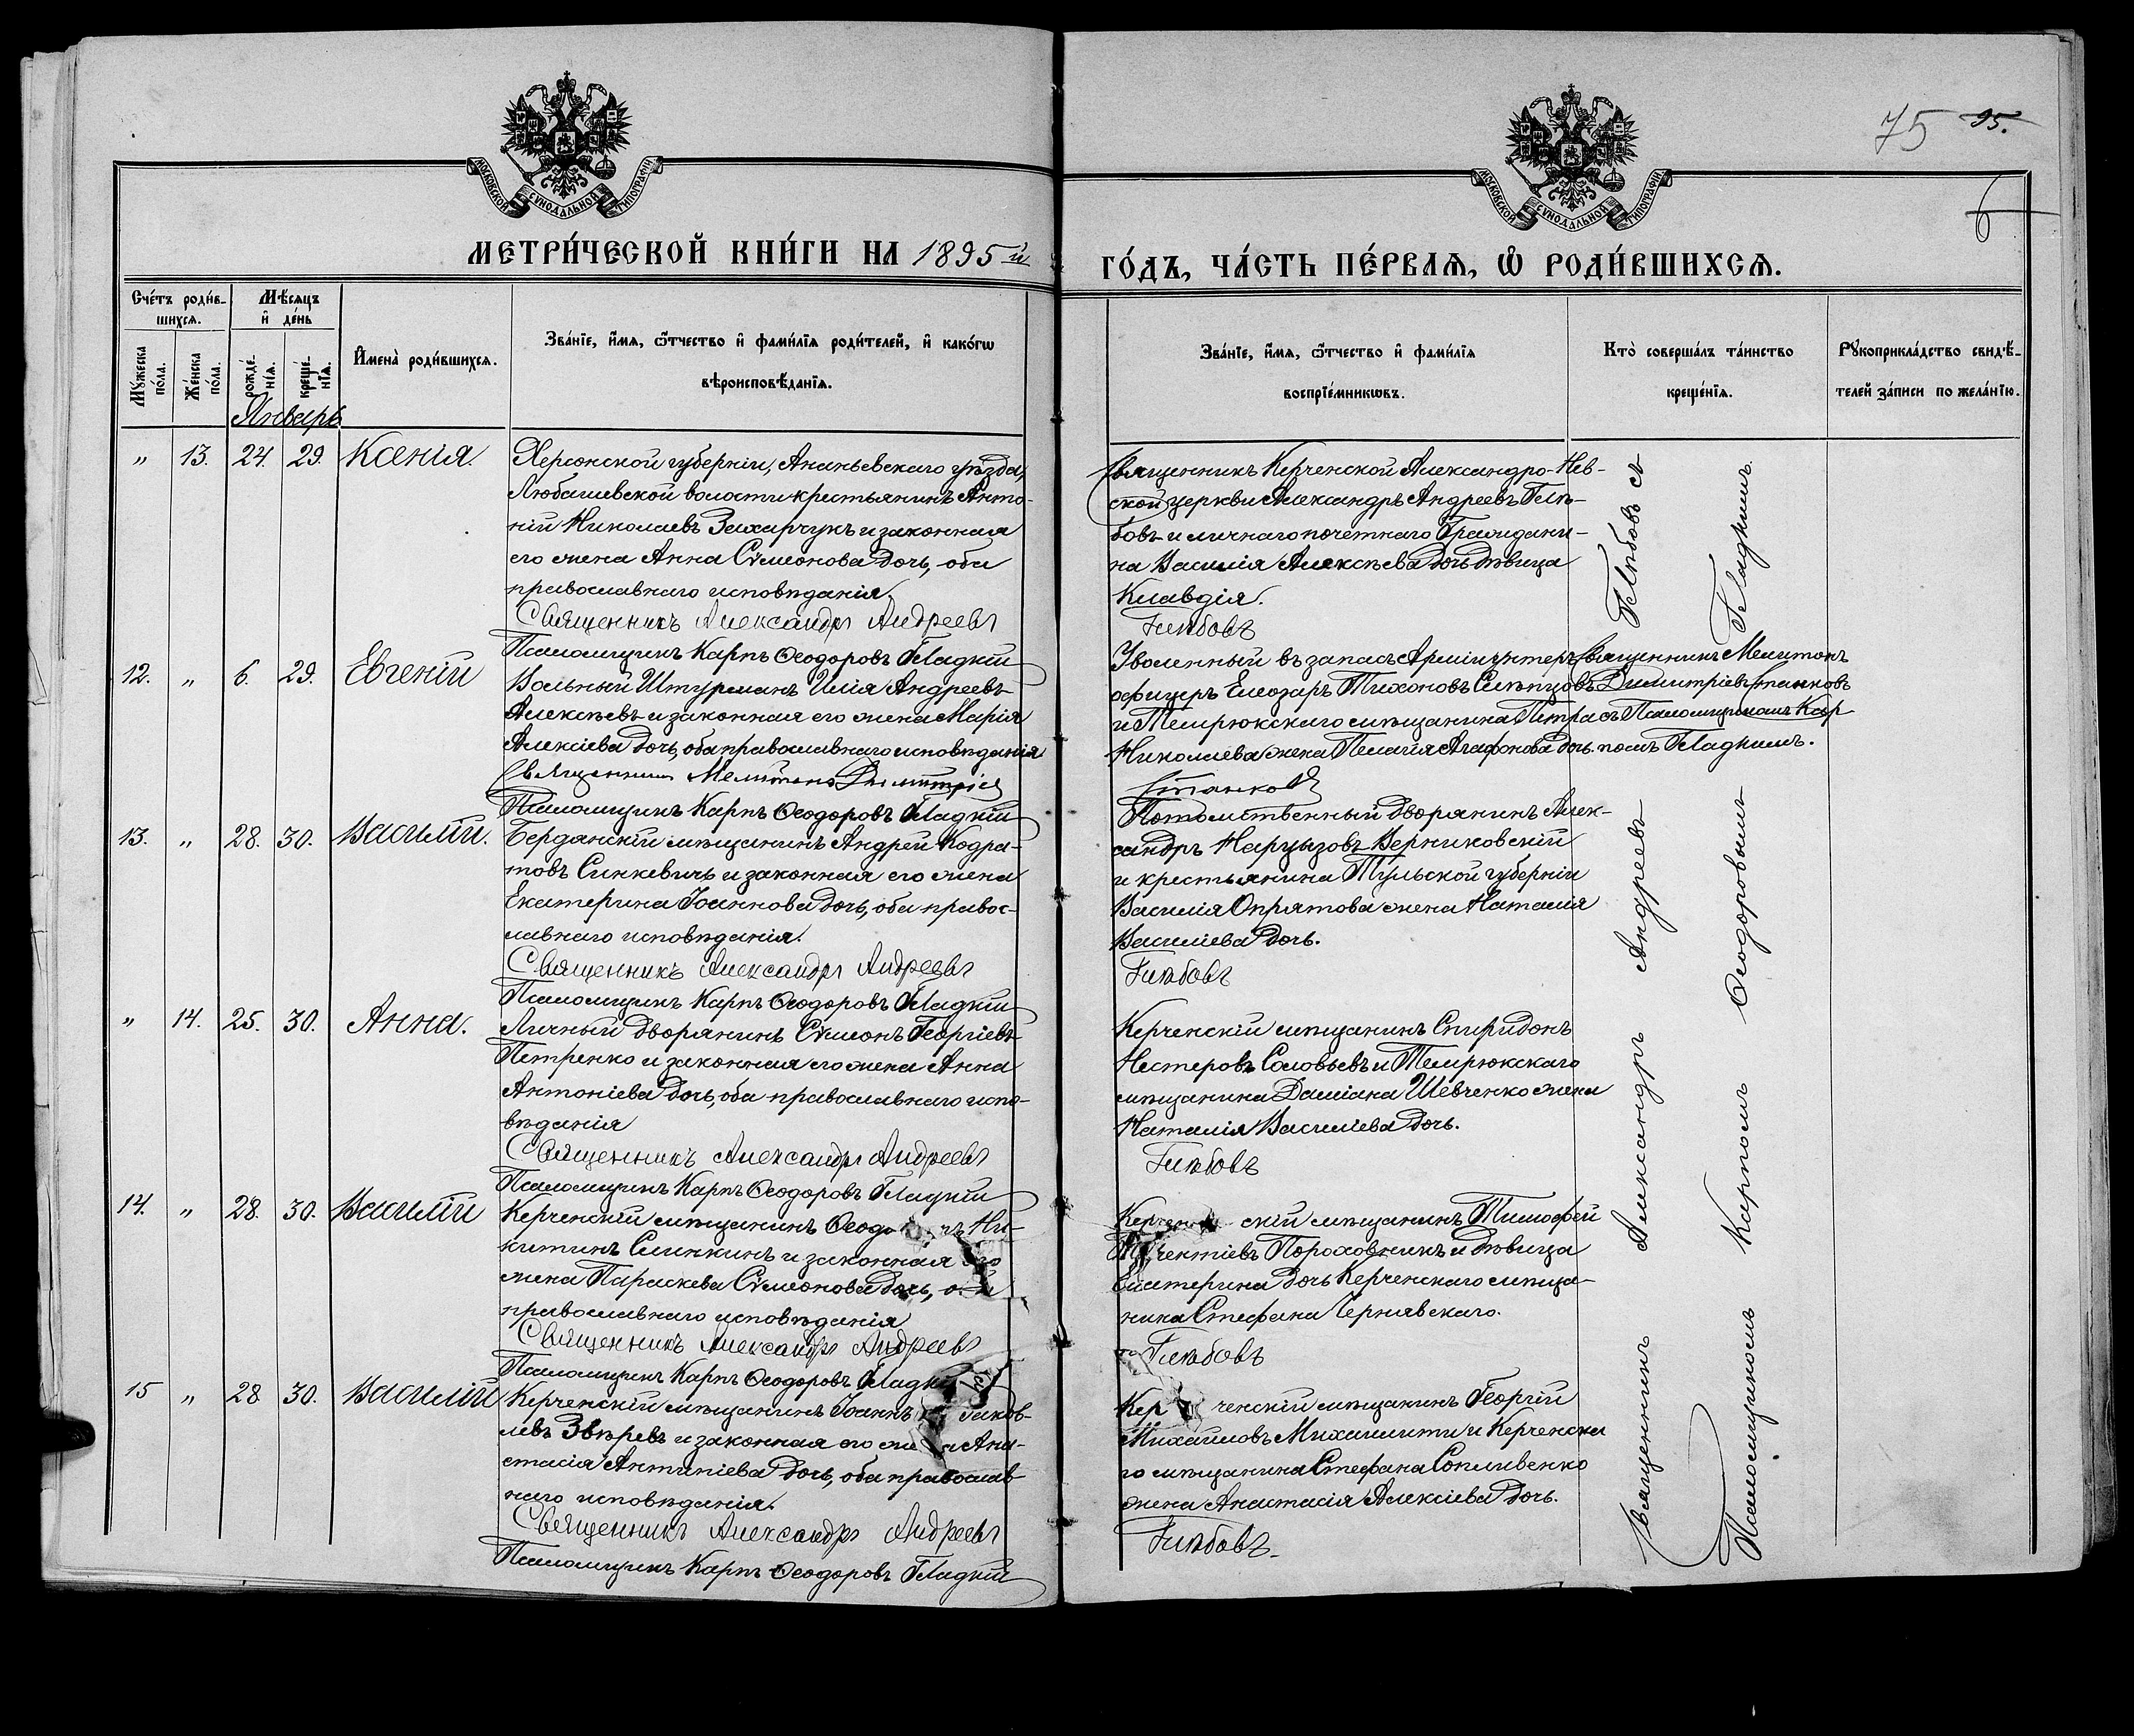 75 95.
6
МОСКОВСКОЙ СѴНОДАЛЬНОЙ ТИПОГРАФІИ
МОСКОВСКОЙ СѴНОДАЛЬНОЙ ТИПОГРАФІИ
МЕТРИ́ЧЕСКОЙ КНИ́ГИ НА 1895 й
ГО́ДЪ, ЧА́СТЬ ПЕ́РВАЯ, Ѡ РОДИ́ВШИХСЯ.
Сче́тъ роди́в-
шихся.
Мѣ́сяцъ
и де́нь
Му́жеска
по́ла.
Же́нска
по́ла.
рожде́-
нїя.
креще́-
нїя.
Имена̀ роди́вшихся.
Зва́нїе, и́мя, ѻ҆́тчество и фами́лїя роди́телей, и како́гѡ
вѣроисповѣ́данїя.
Зва́нїе, и́мя, ѻ҆́тчество и фами́лїя
воспрїе́мникѡвъ.
Кто̀ соверша́лъ та́инство
креще́нїя.
Рꙋкоприкла́дство свидѣ́-
телей за́писи по жела́нїю.
Январь
„ 13. 24. 29. Ксенія.
Херсонской губерніи, Ананьевскаго уѣзда,
Любашевской волости крестьянинъ Анто-
ній Николаевъ Захарчукъ и законная
его жена Анна Сѵмеонова дочь, оба
православнаго исповѣданія.
Священникъ Александръ Андреевъ
Псаломщикъ Карпъ Ѳеодоровъ Гладкій
Священникъ Керченской Александро-Нев-
ской церкви Александръ Андреевъ Глѣ-
бовъ и личнаго почетнаго Граждани-
на Василія Алексѣева дочь дѣвица
Клавдія.
Глѣбовъ
12. „ 6. 29. Евгеній
Вольный Штурманъ Илія Андреевъ
Алексѣевъ и законная его жена Марія
Алексіева дочь, оба православнаго исповѣданія
Священникъ Мелитонъ Димитріев
Псаломщикъ Карпъ Ѳеодоровъ Гладкій
Уволенный въ запасъ Арміи унтеръ
офицеръ Елеозаръ Тихоновъ Слѣпцовъ
и Темрюкскаго мѣщанина Петра
Николаева жена Пелагія Агафонова дочь.
Станковъ
Священникъ Мелитонъ
Димитріевъ Станковъ
съ Псаломщикомъ Кар
помъ Гладкимъ.
13. „ 28. 30. Василій.
Бердянскій мѣщанинъ Андрей Кодра-
товъ Синкевичъ и законная его жена
Екатерина Іоаннова дочь, оба правос-
лавнаго исповѣданія.
Священникъ Александръ Андреевъ
Псаломщикъ Карпъ Ѳеодоровъ Гладкій
Потомственный дворянинъ Алек-
сандръ Нарцызовъ Верниковскій
и крестьянина Тульской губерніи
Василія Опрятова жена Наталія
Василіева дочь.
Глѣбовъ
„ 14. 25. 30. Анна.
Личный дворянинъ Сѵмеонъ Георгіевъ
Петренко и законная его жена Анна
Антоніева дочь, оба православнаго испо-
вѣданія
Священникъ Александръ Андреевъ
Псаломщикъ Карпъ Ѳеодоровъ Гладкій
Керченскій мѣщанинъ Спиридонъ
Нестеровъ Соловьевъ и Темрюкскаго
мѣщанина Даміана Шевченко жена
Наталія Василіева дочь.
Глѣбовъ
14. „ 28. 30. Василій
Керченскій мѣщанинъ Ѳеодо ръ Ни-
китинъ Слинкинъ и законная его
жена Параскева Сѵмеонова дочь, оба
православнаго исповѣданія
Священникъ Александръ Андреевъ
Псаломщикъ Карпъ Ѳеодоровъ Гладкій
Керчен скій мѣщанинъ Тимоѳей
Пороховникъ и дѣвица
Екатерина дочь Керченскаго мѣща-
нина Стефана Чернявскаго.
Глѣбовъ
15 „ 28 30. Василій
Керченскій мѣщанинъ Іоаннъ Іаков-
левъ Звѣревъ и законная его жена Ана-
стасія Антипіева дочь, оба православ-
наго исповѣданія.
Священникъ Александръ Андреевъ
Псаломщикъ Карпъ Ѳеодоровъ Гладкій
Кер ченскій мѣщанинъ Георгій
Михайловъ Михаилити и Керченска
го мѣщанина Стефана Сопливенко
жена Анастасія Алексіева дочь.
Глѣбовъ.
Священникъ Александръ Андреевъ Глѣбовъ съ
Псаломщикомъ Карпомъ Ѳеодоровымъ Гладкимъ.